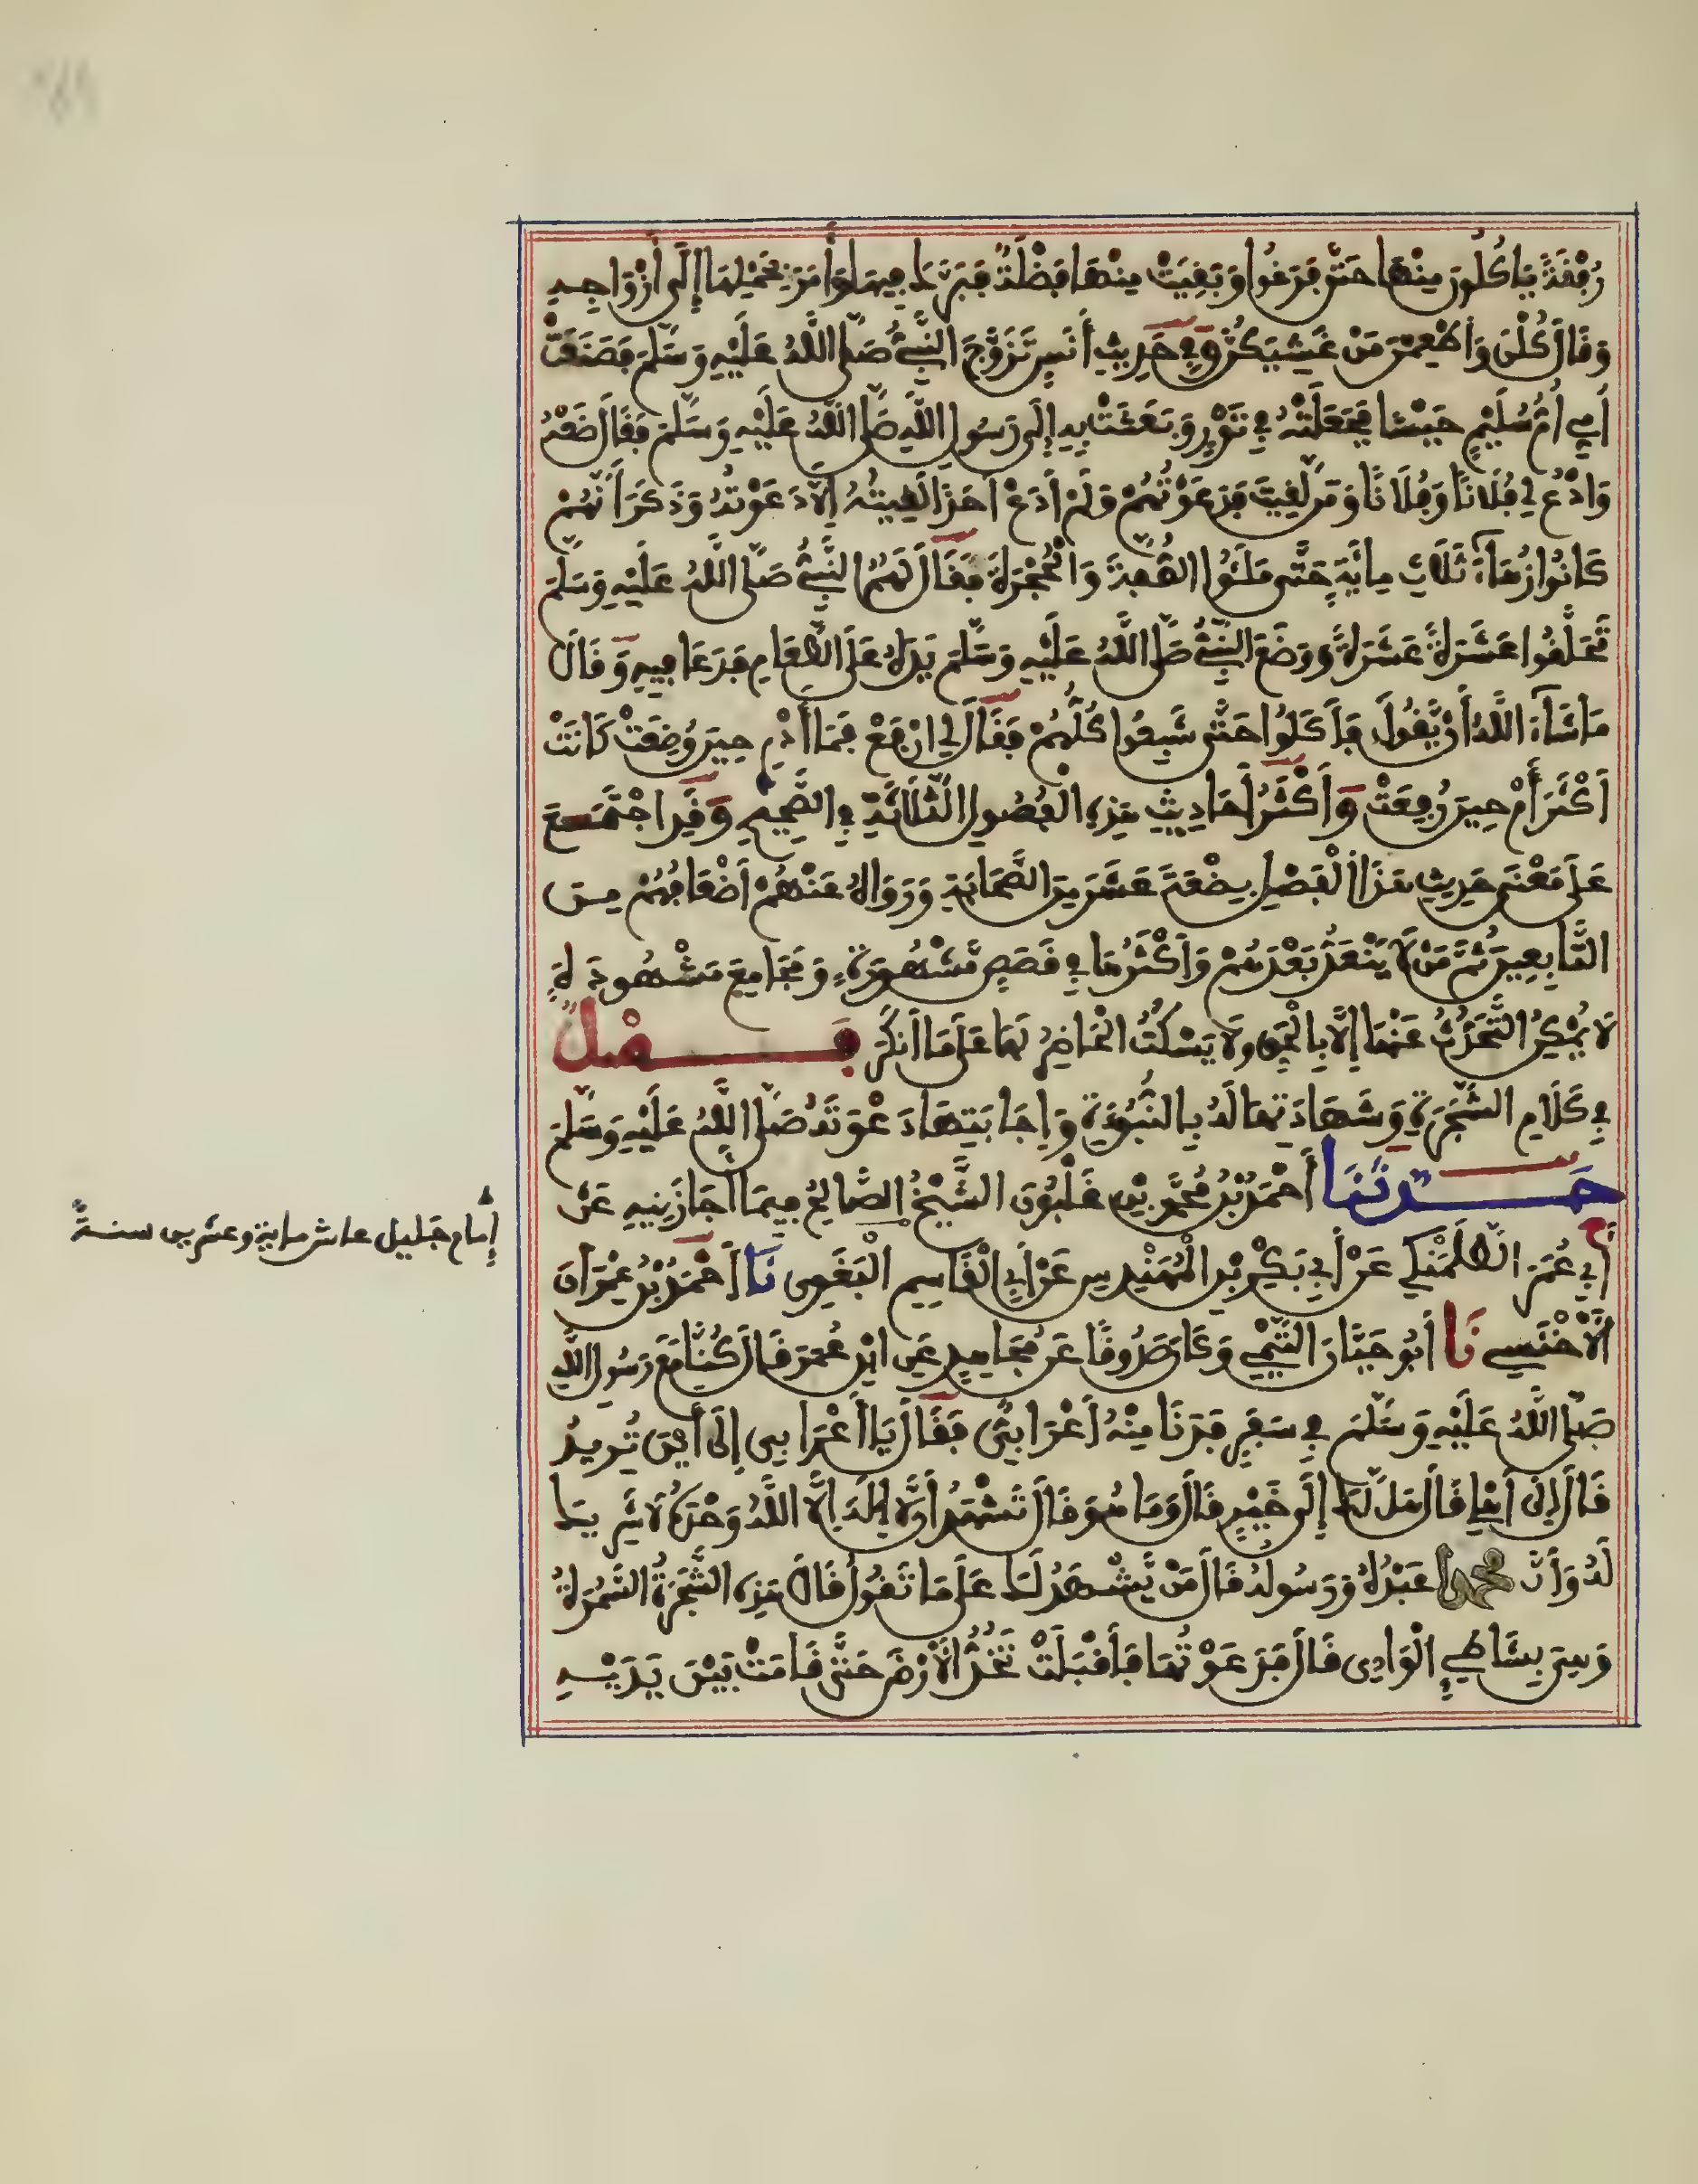 رُفْقَةً يَأْكُلُونَ مِنْهَا حَتَّى فَرَغُوا وَبَقِيَتْ مِنْهَا فَضْلَةٌ فَبَرَّكَ فِيهَا وَأَمَرَ بِحَمْلِهَا إِلَى أَزْوَاجِهِ
وَقَالَ كُلْنَ وَأَطْعِمْنَ مَنْ غَشِيَكُنَّ وَفِي حَدِيثِ أَنَسٍ تَزَوَّجَ النَّبِيُّ صَلَّى اللَّهُ عَلَيْهِ وَسَلَّمَ فَصَنَعَتْ
أُمِّي أُمُّ سُلَيْمٍ حَيْسًا فَجَعَلَتْهُ فِي تَوْرٍ وَبَعَثَتْ بِهِ إِلَى رَسُولِ اللَّهِ صَلَّى اللَّهُ عَلَيْهِ وَسَلَّمَ فَقَالَ ضَعْهُ
وَادْعُ لِي فُلَانًا وَفُلَانًا وَمَن لَّقِيتَ فَدَعَوْتُهُمْ وَلَمْ أَدَعْ أَحَدًا لَقِيتُهُ إِلَّا دَعَوْتُهُ وَذَكَرَ أَنَّهُمْ
كَانُوا زُهَاءَ ثَلَاثِ مِائَةٍ حَتَّى مَلَئُوا الصُّفَّةَ وَالْحُجْرَةَ فَقَالَ لَهُمُ النَّبِيُّ صَلَّى اللَّهُ عَلَيْهِ وَسَلَّمَ
تَحَلَّقُوا عَشَرَةً عَشَرَةً وَوَضَعَ النَّبِيُّ صَلَّى اللَّهُ عَلَيْهِ وَسَلَّمَ يَدَهُ عَلَى الطَّعَامِ فَدَعَا فِيهِ وَقَالَ
مَا شَاءَ اللَّهُ أَن يَّقُولَ فَأَكَلُوا حَتَّى شَبِعُوا كُلُّهُمْ فَقَالَ لِي ارْفَعْ فَمَا أَدْرِي حِينَ وُضِعَتْ كَانَتْ
أَكْثَرَ أَمْ حِينَ رُفِعَتْ وَأَكْثَرُ أَحَادِيثِ هَذِهِ الْفُصُولِ الثَّلَاثَةِ فِي الصَّحِيحِ وَقَدِ اجْتَمَعَ
عَلَى مَعْنَى حَدِيثِ هَذَا الْفَصْلِ بِضْعَةَ عَشَرَ مِنَ الصَّحَابَةِ وَرَوَاهُ عَنْهُمْ أَضْعَافُهُمْ مِنَ
التَّابِعِينَ ثُمَّ مَنْ لَا يَنْعَدُّ بَعْدَهُمْ وَأَكْثَرُهَا فِي قَصَصٍ مَّشْهُورَةٍ وَمَجَامِعَ مَشْهُودَةٍ
لَا يُمْكِنُ التَّحَدُّثُ عَنْهَا إِلَّا بِالْحَقِّ وَلَا يَسْكُتُ الْحَاضِرُ لَهَا عَلَى مَا أَنْكَرَ فَصْلٌ
فِي كَلَامِ الشَّجَرَةِ وَشَهَادَتِهَا لَهُ بِالنُّبُوَّةِ وَإِجَابَتِهَا دَعْوَتَهُ صَلَّى اللَّهُ عَلَيْهِ وَسَلَّمَ
حَدَّثَنَا أَحْمَدُ بْنُ مُحَمَّدِ بْنِ غَلْبُونَ الشَّيْخُ الصَّالِحُ فِيمَا أَجَازَنِيهِ عَنْ
أَبِي عُمَرَ الطَّلَمَنْكِي عَنْ أَبِي بَكْرِ بْنِ الْمُهَنْدِسِ عَنْ أَبِي الْقَاسِمِ الْبَغَوِي نَا أَحْمَدُ بْنُ عِمْرَانَ
الْأَخْنَسِي نَا أَبُو حَيَّانَ التَّيْمِي وَكَانَ صَدُوقًا عَنْ مُجَاهِدٍ عَنِ ابْنِ عُمَرَ قَالَ كُنَّا مَعَ رَسُولِ اللَّهِ
صَلَّى اللَّهُ عَلَيْهِ وَسَلَّمَ فِي سَفَرٍ فَدَنَا مِنْهُ أَعْرَابِيٌّ فَقَالَ يَا أَعْرَابِي إِلَى أَيْنَ تُرِيدُ
قَالَ إِلَى أَهْلِي قَالَ هَل لَّكَ إِلَى خَيْرٍ قَالَ وَمَا هُوَ قَالَ تَشْهَدُ أَن لَّا إِلَهَ إِلَّا اللَّهُ وَحْدَهُ لَا شَرِيكَ
لَهُ وَأَنَّ مُحَمَّدًا عَبْدُهُ وَرَسُولُهُ قَالَ مَنْ يَّشْهَدُ لَكَ عَلَى مَا تَقُولُ قَالَ هَذِهِ الشَّجَرَةُ السَّمُرَةُ
وَهِيَ بِشَاطِئِ الْوَادِي قَالَ فَدَعَوْتُهَا فَأَقْبَلَتْ تَخُدُّ الْأَرْضَ حَتَّى قَامَتْ بَيْنَ يَدَيْهِ
إِمَام جَلِيل عاش ماية وعشرين سنةً